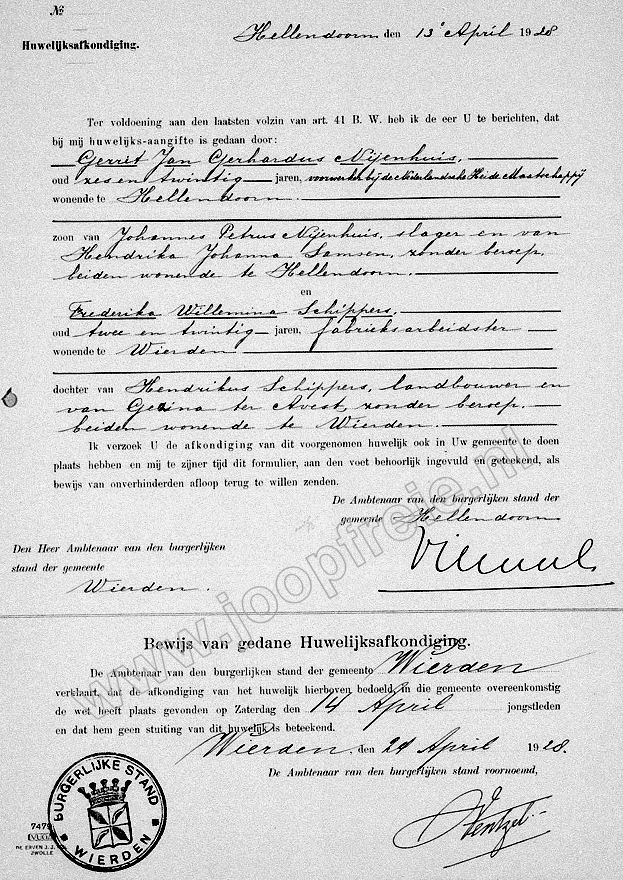 №
Huwelijksafkondiging.
Hellendoorn den 13e April 1928
Ter voldoening aan den laatsten volzin van art. 41 B. W. heb ik de eer U te berichten, dat
bij mij huwelijks-aangifte is gedaan door:
Gerrit Jan Gerhardus Nijenhuis,
oud zes en twintig jaren, voorwerker bij de Nederlandsche Heide Maatschappij
wonende te Hellendoorn.
zoon van Johannes Petrus Nijenhuis, slager en van
Hendrika Johanna Samsen, zonder beroep,
beiden wonende te Hellendoorn.
en
Frederika Willemina Schippers,
oud twee en twintig jaren, fabrieksarbeidster
wonende te Wierden
dochter van Hendrikus Schippers, landbouwer en
van Gezina ter Avest, zonder beroep.
beiden wonende te Wierden.
Ik verzoek U de afkondiging van dit voorgenomen huwelijk ook in Uw gemeente te doen
plaats hebben en mij te zijner tijd dit formulier, aan den voet behoorlijk ingevuld en geteekend, als
bewijs van onverhinderden afloop terug te willen zenden.
De Ambtenaar van den burgerlijken stand der
gemeente Hellendoorn
Den Heer Ambtenaar van den burgerlijken
stand der gemeente
Wierden.
www.joopfreje.nl
Bewijs van gedane Huwelijksafkondiging.
De Ambtenaar van den burgerlijken stand der gemeente Wierden
verklaart, dat de afkondiging van het huwelijk hierboven bedoeld, in die gemeente overeenkomstig
de wet heeft plaats gevonden op Zaterdag den 14 April jongstleden
en dat hem geen stuiting van dit huwelijk is beteekend.
Wierden, den 24 April 1928.
De Ambtenaar van den burgerlijken stand voornoemd,
BURGERLIJKE STAND
WIERDEN
7479
VUGA
DE ERVEN J.J.
ZWOLLE